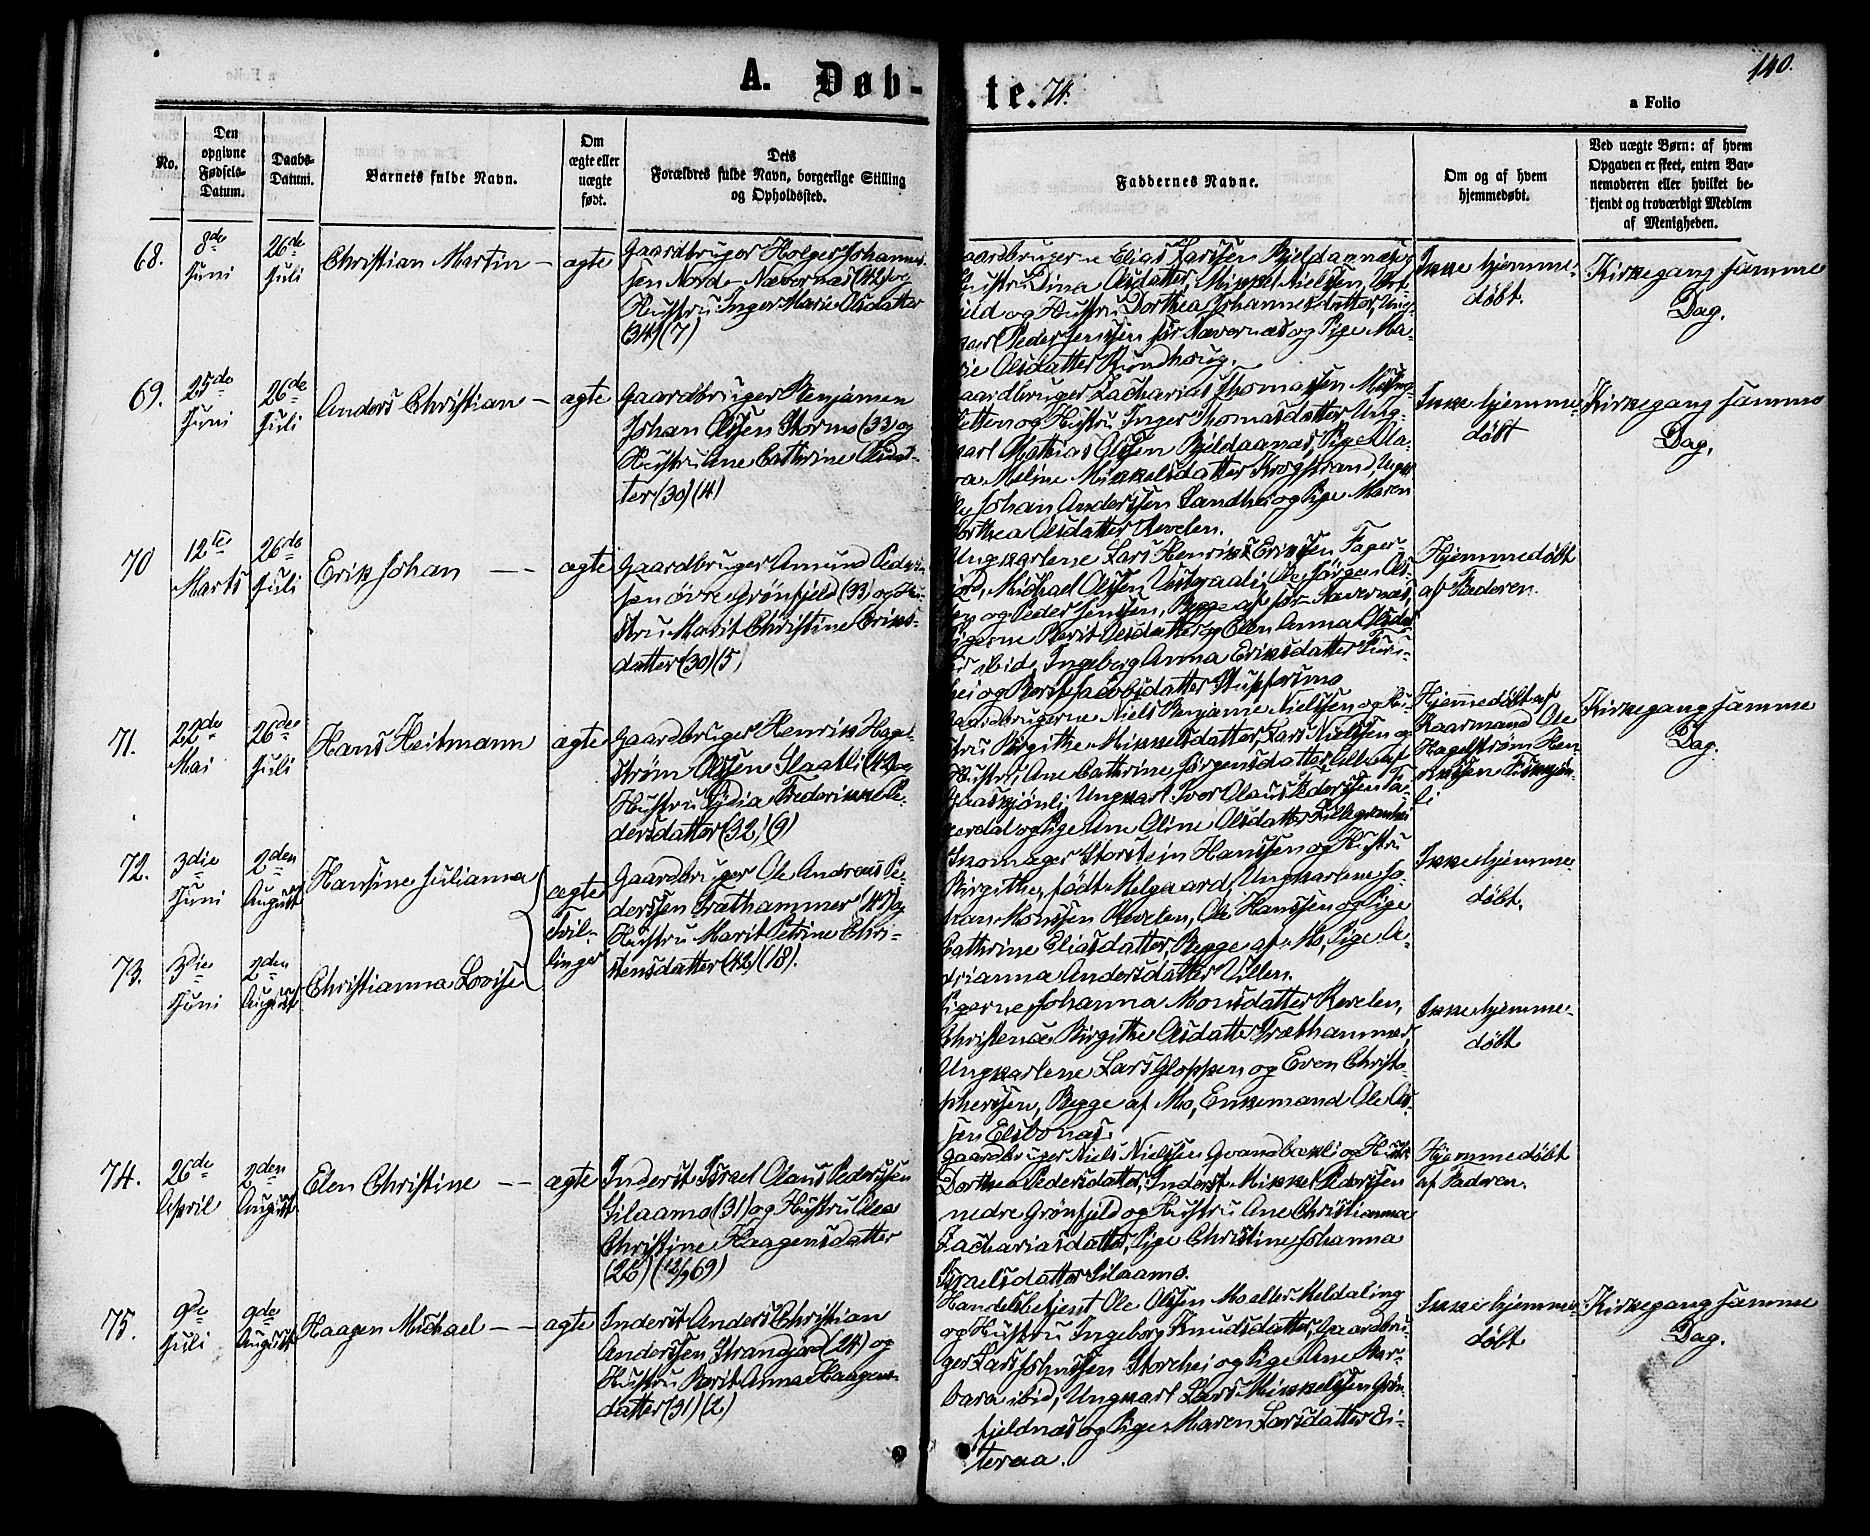 140.
A. Døb-te. 74.
a Folio
No.
Den
opgivne
Fødsels-
Datum.
Daabs-
Datum.
Barnets fulde Navn.
Om
ægte eller
uægte
født.
Dets
Forældres fulde Navn, borgerlige Stilling
og Opholdssted.
Faddernes Navne.
Om og af hvem
hjemmedøbt.
Ved uægte Børn: af hvem
Opgaven er skeet, enten Bar-
nemoderen eller hvilket be-
kjendt og troværdigt Medlem
af Menigheden.
68.
8de
Juni
26de
Juli
Christian Martin —
ægte
Gaardbruger Holger Johannes-
sen Nordre Nævernæs (42) og
Hustru Inger Marie Olsdatter
(34) (7)
Gaardbrugerne Elias Larssen Bjeldaanæs og
Hustru Dina Olsdatter, Mikkel Nielssen
og Hustru Dorthea Johannesdatter, Ung-
karl Peder Jenssen sør Nævernæs og Pige Ma-
rie Olsdatter Rundhoug.
Ikke hjemme-
døbt.
Kirkegang samme
Dag.
69.
25de
Juni
26de
Juli
Anders Christian —
ægte
Gaardbruger Benjamen
Johan Olssen Stormo (33) og
Hustru Ane Cathrine Olsdat-
ter (30) (4)
Gaardbruger Zacharias Thomassen
og Hustru Inger Thomasdatter, Ung-
karl Mathias Olssen Bjeldaanæs, Pige Ma-
Meline Mikkelsdatter Krogstrand,
Johan Anderssen Sandhei og Pige Maren
Dorthea Olsdatter Revelen.
Ikke hjemme-
døbt
Kirkegang samme
Dag.
70
12te
Marts
26de
Juli
Erik Johan — —
ægte
Gaardbruger Amund Peders-
sen øvre Grønfjeld (33) og Hu-
stru Marit Christine Eriks-
datter (30) (5)
Ungkarlene Lars Henrik Erikssen Fager-
Michael Olssen Ole Jørgen Ols-
sen og Peder Jenssen, Begge af sør Nævernæs,
Pigerne Berit Olsdatter og Elen Anna Olsdat-
ter ibid, Ingeborg Anna Eriksdatter Furu-
hei og Berit Jacobsdatter Stupforsmo
Hjemmedøbt
af Faderen.
71.
22de
Mai
26de
Juli
Hans Heitmann
ægte
Gaardbruger Henrik Hagel-
strøm Olssen Slaatli (42) og
Hustru Lydia Frederikke Pe-
dersdatter (32) (9)
Gaardbrugerne Niels Benjamin Nielssen og Hu-
stru Birgithe Mikkelsdatter, Lars Nielssen og
Hustru Ane Cathrine Jørgensdatter, alle af
Ungkarl Iver Olaus Pederssen
og Pige Ane Oline Olsdatter
Hjemmedøbt af
Kaarmand Ole
Hagelstrøm Hen-
rikssen Fiskjøn-
li
Kirkegang samme
Dag.
72.
3die
Juni
2den
August
Hansine Julianna
ægte
Tvil-
linger
Gaardbruger Ole Andreas Pe-
derssen Træthammer (47) og
Hustru Marit Petrine Chri-
stensdatter (42) (18).
Skomager Storstein Hanssen og Hustru
Birgithe, født Melgaard, Ungkarlene Jo-
han Monssen Revelen, Ole Hanssen og Pige
Cathrine Eliasdatter, Begge af Mo, Pige A-
drianna Andersdatter Vilen.
Ikke hjemme-
døbt.
73.
3die
Juni
2den
August
Christianna Lovise
Pigerne Johanna Monsdatter Revelen,
Christence Birgithe Olsdatter Træthammer,
Ungkarlene Lars Gloppen og Even Christo-
pherssen, Begge af Mo, Enkemand Ole Ols-
sen Elsbonæs.
Ikke hjemme-
døbt
74.
26de
April
2den
August
Elen Christine — —
ægte
Inderst Israel Olaus Pederssen
Silaamo (31) og Hustru Olea
Christine Haagensdatter
(26) (12/9 69)
Gaardbruger Niels Nielssen Qvandbækli og Hustr
Dorthea Pedersdatter, Inderst Mikkel Pederssen
nedre Grønfjeld og Hustru Ane Christianna
Zachariasdatter, Pige Christine Johanna
Israelsdatter Silaamo.
Hjemmedøbt
af Faderen.
75.
9de
Juli
9de
August
Haagen Michael — —
ægte
Inderst Anders Christian
Anderssen Strandjord (24) og
Hustru Berit Anna Haagens-
datter (31) (2)
Handelsbetjent Ole Olssen Moeller Meldaling
og Hustru Ingeborg Knudsdatter, Gaardbru-
ger Lars Johnssen Storehei og Pige Ane Bar-
bara ibid, Ungkarl Lars Mikkelssen Grøn-
fjeldnæs og Pige Maren Larsdatter Ei-
teraa.
Ikke hjemme-
døbt
Kirkegang samme
Dag.